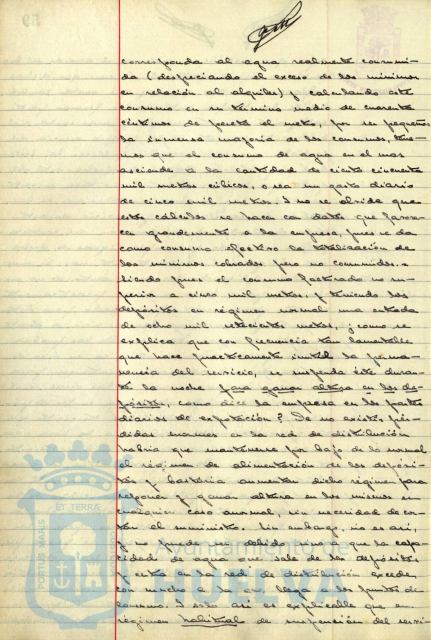 corresponda al agua realmente consumi-
da (despreciando el exceso de los mínimos
en relación al alquiler) y calculando este
consumo en su término medio de cuarenta
céntimos de peseta el metro, por ser pequeños
la inmensa mayoría de los consumos, tene-
mos que el consumo de agua en el mes
asciende a la cantidad de ciento cincuenta
mil metros cúbicos, o sea un gasto diario
de cinco mil metros. I no se olvida que
estos cálculos se hacen con datos que favore-
cen grandemente a la empresa, pues se da
como consumo efectivo la totalización de
los mínimos cobrados pero no consumidos.
Siendo pues el consumo facturado no su-
perior a cinco mil metros, y teniendo los
depósitos en régimen normal una entrada
de ocho mil setecientos metros, ¿como se
explica que con frecuencia tan lamentable
que hace practicamente inutil la perma-
nencia del servicio, se suspenda éste duran-
te la noche para ganar altura en los de-
pósitos, como dice la empresa en los partes
diarios de explotación? De no existir pér-
didas enormes en la red de distribución
habría que mantenerse por bajo de lo normal
el régimen de alimentación de los depósi-
tos y bastaría aumentar dicho régimen para
reponer y ganar altura en los mismos en
cualquier caso anormal, sin necesidad de cor-
tar el suministro. Sin embargo, no es así,
y no puede ser debido sino a que la capa-
cidad de agua que sale de los depósitos
y entra en la red de distribución excede
con mucho a la que llega a los puntos de
consumo. I solo así es explicable que en
régimen habitual de suspensión del servi-
PORTUS MARIS ET TERRAE
Ayuntamiento de
HUELVA